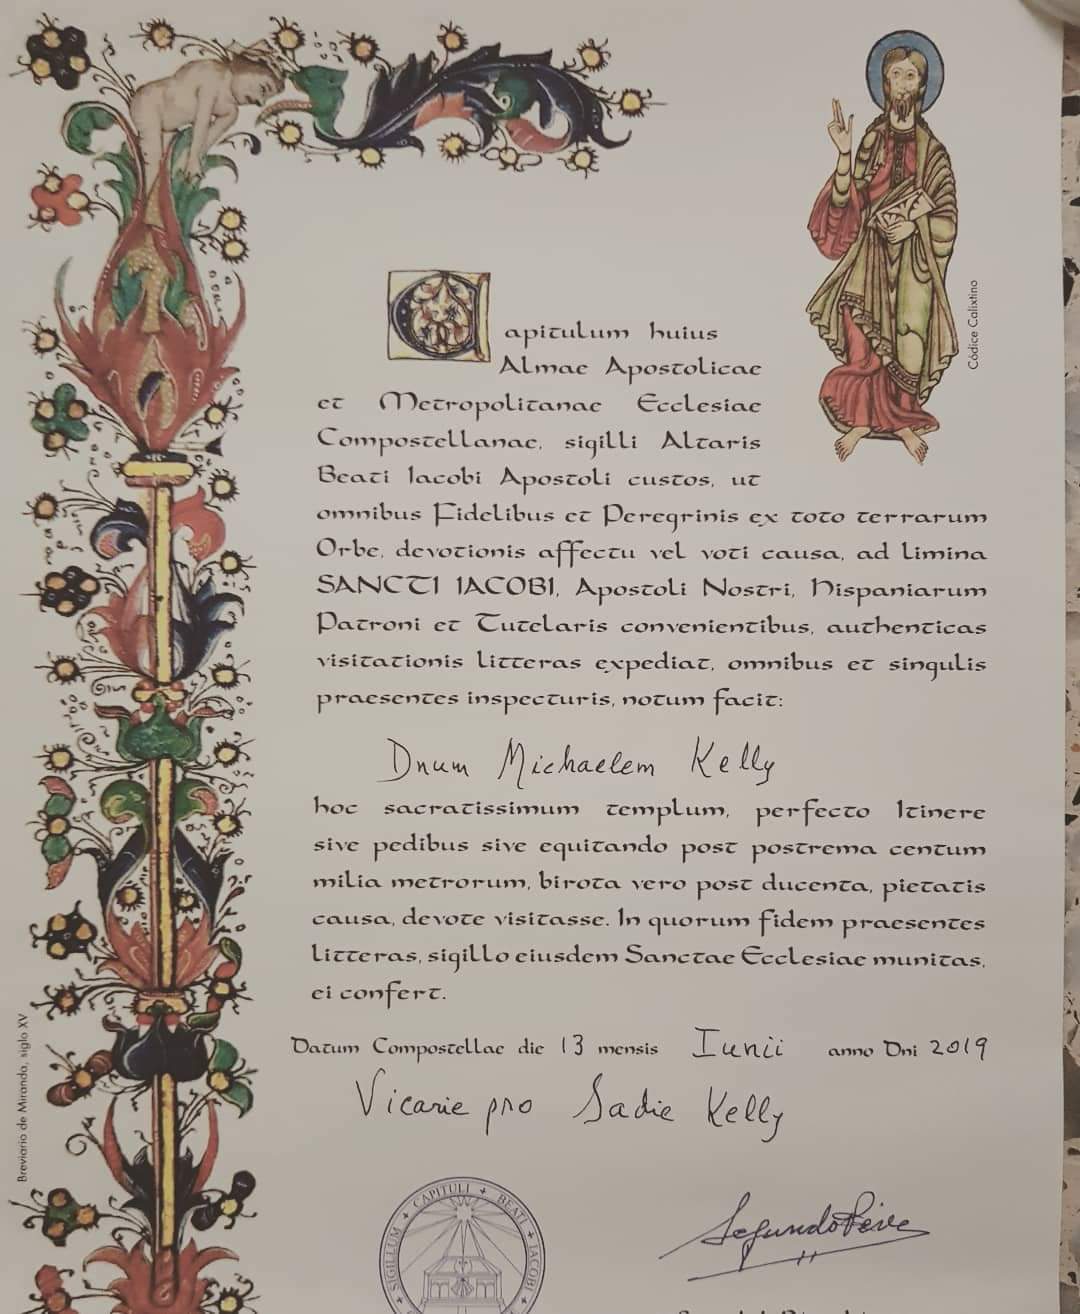 Códice Calixtino
Capitulum huius
Almae Apostolicae
et Metropolitanae Ecclesiae
Compostellanae, sigilli Altaris
Beati Iacobi Apostoli custos, ut
omnibus Fidelibus et Peregrinis ex toto terrarum
Orbe, devotionis affectu vel voti causa, ad limina
SANCTI IACOBI, Apostoli Nostri, Hispaniarum
Patroni et Tutelaris convenientibus, authenticas
visitationis litteras expediat, omnibus et singulis
praesentes inspecturis, notum facit:
Dnum Michaelem Kelly
hoc sacratissimum templum, perfecto Itinere
sive pedibus sive equitando post postrema centum
milia metrorum, birota vero post ducenta, pietatis
causa, devote visitasse. In quorum fidem praesentes
litteras, sigillo eiusdem Sanctae Ecclesiae munitas,
ei confert.
Datum Compostellae die 13 mensis Iunii anno Dni 2019
Vicarie pro Sadie Kelly
Breviario de Miranda, siglo XV
SIGILLUM + CAPITULI + BEATI + IACOBI